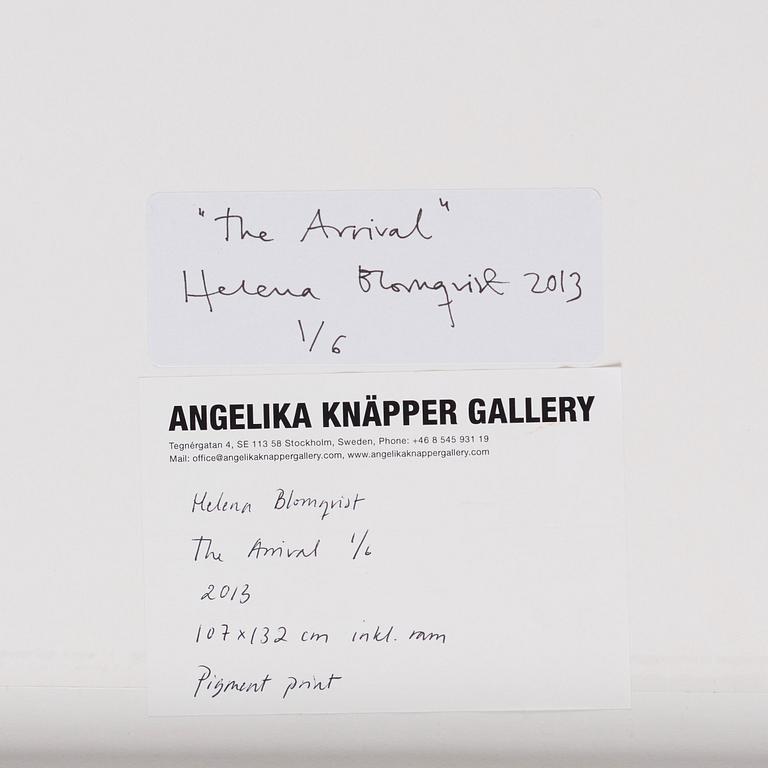 "The Arrival"
Helena Blomqvist 2013
1/6
ANGELIKA KNÄPPER GALLERY
Tegnérgatan 4, SE 113 58 Stockholm, Sweden, Phone: +46 8 545 931 19
Mail: office@angelikaknappergallery.com, www.angelikaknappergallery.com
Helena Blomqvist
The Arrival 1/6
2013
107x132 cm inkl. ram
Pigment print